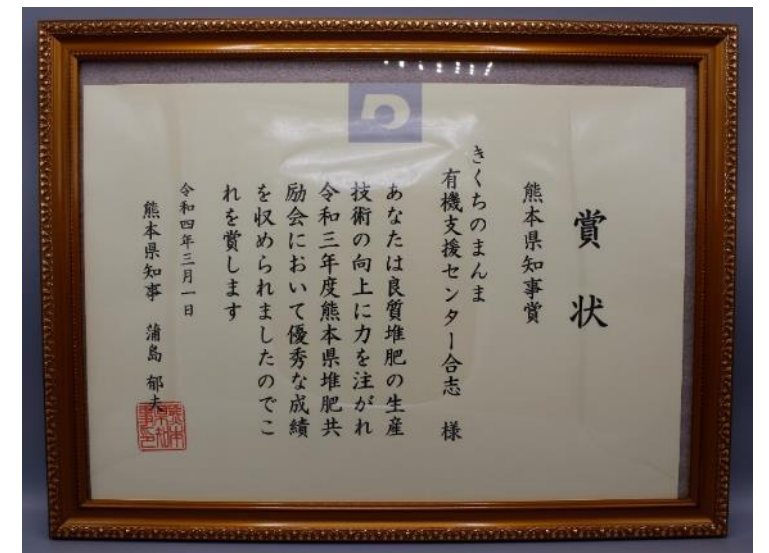 賞状
熊本県知事賞
きくちのまんま
有機支援センター合志 様
あなたは良質堆肥の生産
技術の向上に力を注がれ
令和三年度熊本県堆肥共
励会において優秀な成績
を収められましたのでこ
れを賞します
令和四年三月一日
熊本県知事 蒲島 郁夫